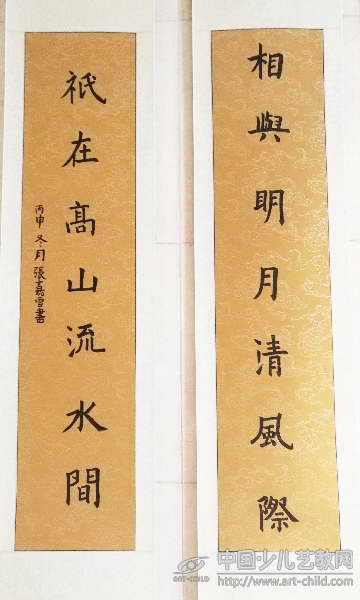 相與明月清風際
祇在髙山流水間
丙申冬月張嘉雪書
中国少儿艺教网
ART-CHILD
http://www.art-child.com